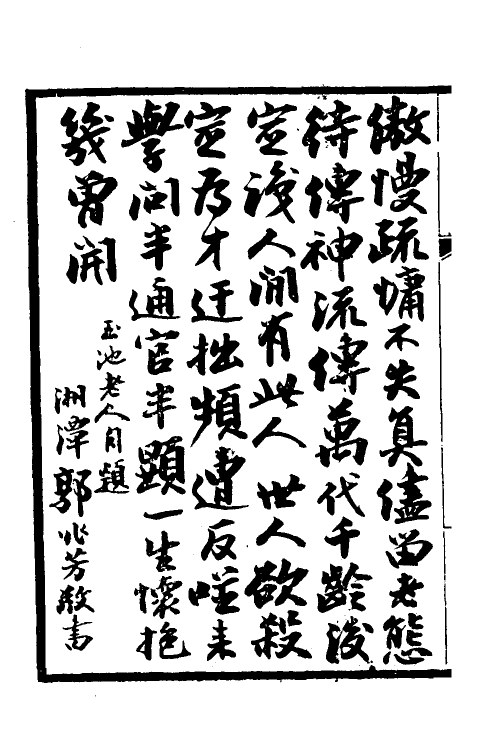 傲慢疏慵不失真儘留老態
待傳神流傳萬代千齡後
定識人間有此人世人欲殺
定為才迂拙頻遭反噬来
學問半通官半顯一生懷抱
幾曾開
玉池老人自題
湘潭郭兆芳敬書